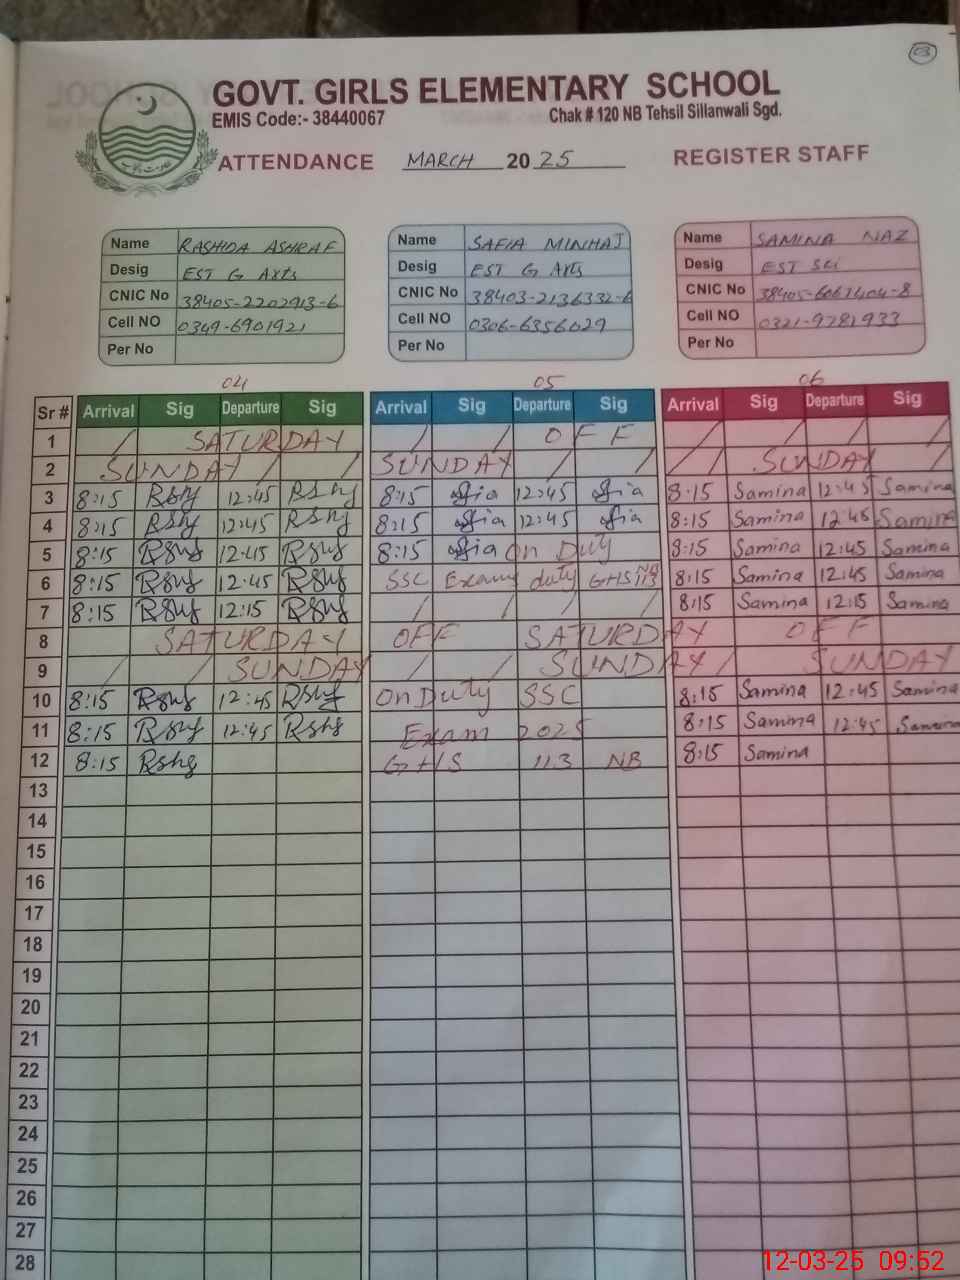 03
GOVT. GIRLS ELEMENTARY SCHOOL
EMIS Code:- 38440067 Chak # 120 NB Tehsil Sillanwali Sgd.
ATTENDANCE MARCH 2025 REGISTER STAFF
Name RASHIDA ASHRAF Name SAFIA MINHAJ Name SAMINA NAZ
Desig EST G Arts Desig EST G Arts Desig EST Sci
CNIC No 38405-2202913-6 CNIC No 38403-2136332-6 CNIC No 38405-6061404-8
Cell NO 0349-6901921 Cell NO 0306-6356029 Cell NO 0321-9781933
Per No Per No Per No
04 05 06
Sr # Arrival Sig Departure Sig Arrival Sig Departure Sig Arrival Sig Departure Sig
1 / SATURDAY / / OFF / / / /
2 SUNDAY / / SUNDAY / / / / SUNDAY /
3 8:15 12:45 8:15 12:45 8:15 Samina 12:45 Samina
4 8:15 12:45 8:15 12:45 8:15 Samina 12:45 Samina
5 8:15 12:45 8:15 On Duty 8:15 Samina 12:45 Samina
6 8:15 12:45 SSC Exam duty GHS 113 NB 8:15 Samina 12:45 Samina
7 8:15 12:15 / / / / 8:15 Samina 12:15 Samina
8 SATURDAY OFF SATURDAY OFF
9 / / SUNDAY / / SUNDAY / SUNDAY
10 8:15 12:45 On Duty SSC 8:15 Samina 12:45 Samina
11 8:15 12:45 Exam 2025 8:15 Samina 12:45 Samina
12 8:15 GHS 113 NB 8:15 Samina
13
14
15
16
17
18
19
20
21
22
23
24
25
26
27
28
12-03-25 09:52